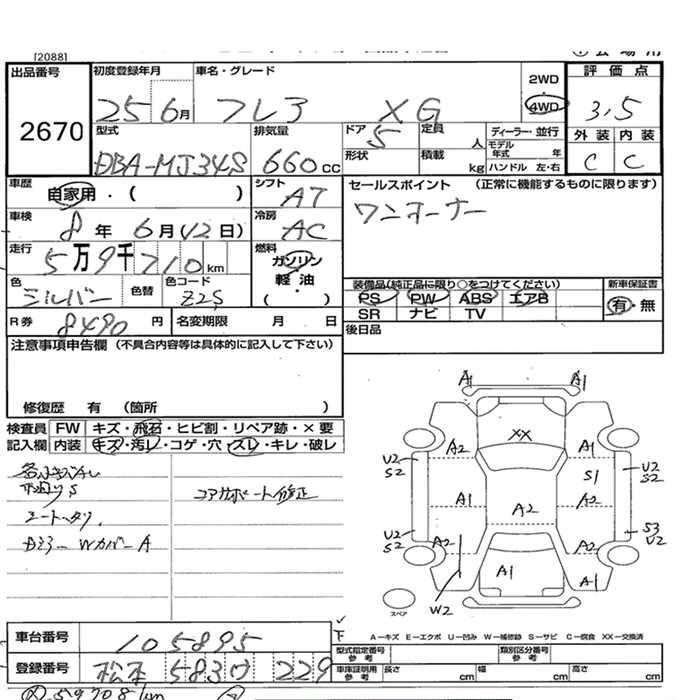 [20881]
出品番号
2670
初度登録年月
25 6月
車名・グレード
フレア XG
2WD
4WD
評価点
3.5
外装 内装
C C
型式
DBA-MJ34S
排気量
660cc
ドア
5
定員
人
形状
積載
kg
ディーラー・並行
モデル年式 年
ハンドル 左・右
車歴
自家用・( )
シフト
AT
車検
8年 6月(12日)
冷房
AC
走行
5万9千710km
燃料
ガソリン
軽油
( )
色
シルバー
色替
色コード
Z2S
セールスポイント (正常に機能するものに限ります)
ワンオーナー
装備品(純正品に限り○をつけてください)
PS PW ABS エアB
SR ナビ TV
新車保証書
有・無
後日品
R券
8490円
名変期限 月 日
注意事項申告欄 (不具合内容等は具体的に記入して下さい)
修復歴 有 (箇所 )
検査員記入欄
FW キズ・飛石・ヒビ割・リペア跡・×要
内装 キズ・汚レ・コゲ・穴・スレ・キレ・破レ
コアサポート修正
シートヘタリ
A1 A1
XX
A2 A1
U2 S2
S1
U2 S2
A1 A2 A2
U2 S2
S3 U2
A2 A2
A1 A1
W2
スペア
下
A-キズ E-エクボ U-凹み W-補修跡 S-サビ C-腐食 XX-交換済
車台番号
105895
登録番号
松本 583 229
型式指定番号 参考
類別区分番号 参考
車庫証明用 参考
長さ cm
幅 cm
高さ cm
59708km